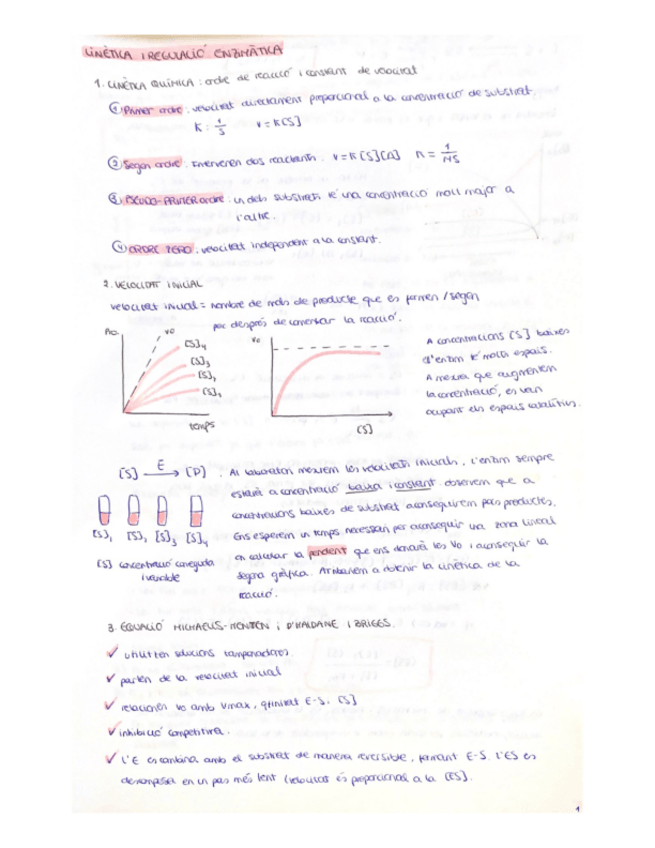 CINÈTICA I REGULACIÓ ENZIMÀTICA
1. CINÈTICA QUÍMICA: ordre de reacció i constant de velocitat
① Primer ordre: velocitat directament proporcional a la concentració de substrat.
K: 1/S v=K[S]
② Segon ordre: Intervenen dos reactants: v=K[S][A] n = 1/MS
③ PSEUDO-PRIMER ordre: un dels substrats té una concentració molt major a
l'altre.
④ ORDRE ZERO: velocitat independent a la constant.
2. VELOCITAT INICIAL
velocitat inicial = nombre de mols de producte que es formen / segon
poc després de començar la reacció.
v0
[S]4
[S]3
[S]2
[S]1
temps
v0
[S]
A concentracions [S] baixes
l'enzim té molts espais.
A mesura que augmentem
la concentració, es van
ocupant els espais catalítics.
[S] E → [P]. Al laboratori mesurem les velocitats inicials, l'enzim sempre
estarà a concentració baixa i constant. observem que a
concentracions baixes de substrat aconseguirem pocs productes.
Ens esperem un temps necessari per aconseguir una zona lineal
en calcular la pendent que ens donarà les V0 i aconseguir la
segona gràfica. Arribarem a obtenir la cinètica de la
reacció.
[S]1 [S]2 [S]3 [S]4
[S] concentració coneguda
i variable
3. EQUACIÓ MICHAELIS-MENTEN i D'HALDANE I BRIGGS.
✓ utilitzen solucions tamponadores.
✓ parlen de la velocitat inicial
✓ relacionen v0 amb Vmax, afinitat E-S, [S]
✓ inhibició competitiva.
✓ L'E es combina amb el substrat de manera reversible, formant E-S. L'ES es
descompon en un pas més lent (velocitat és proporcional a la [ES].
1